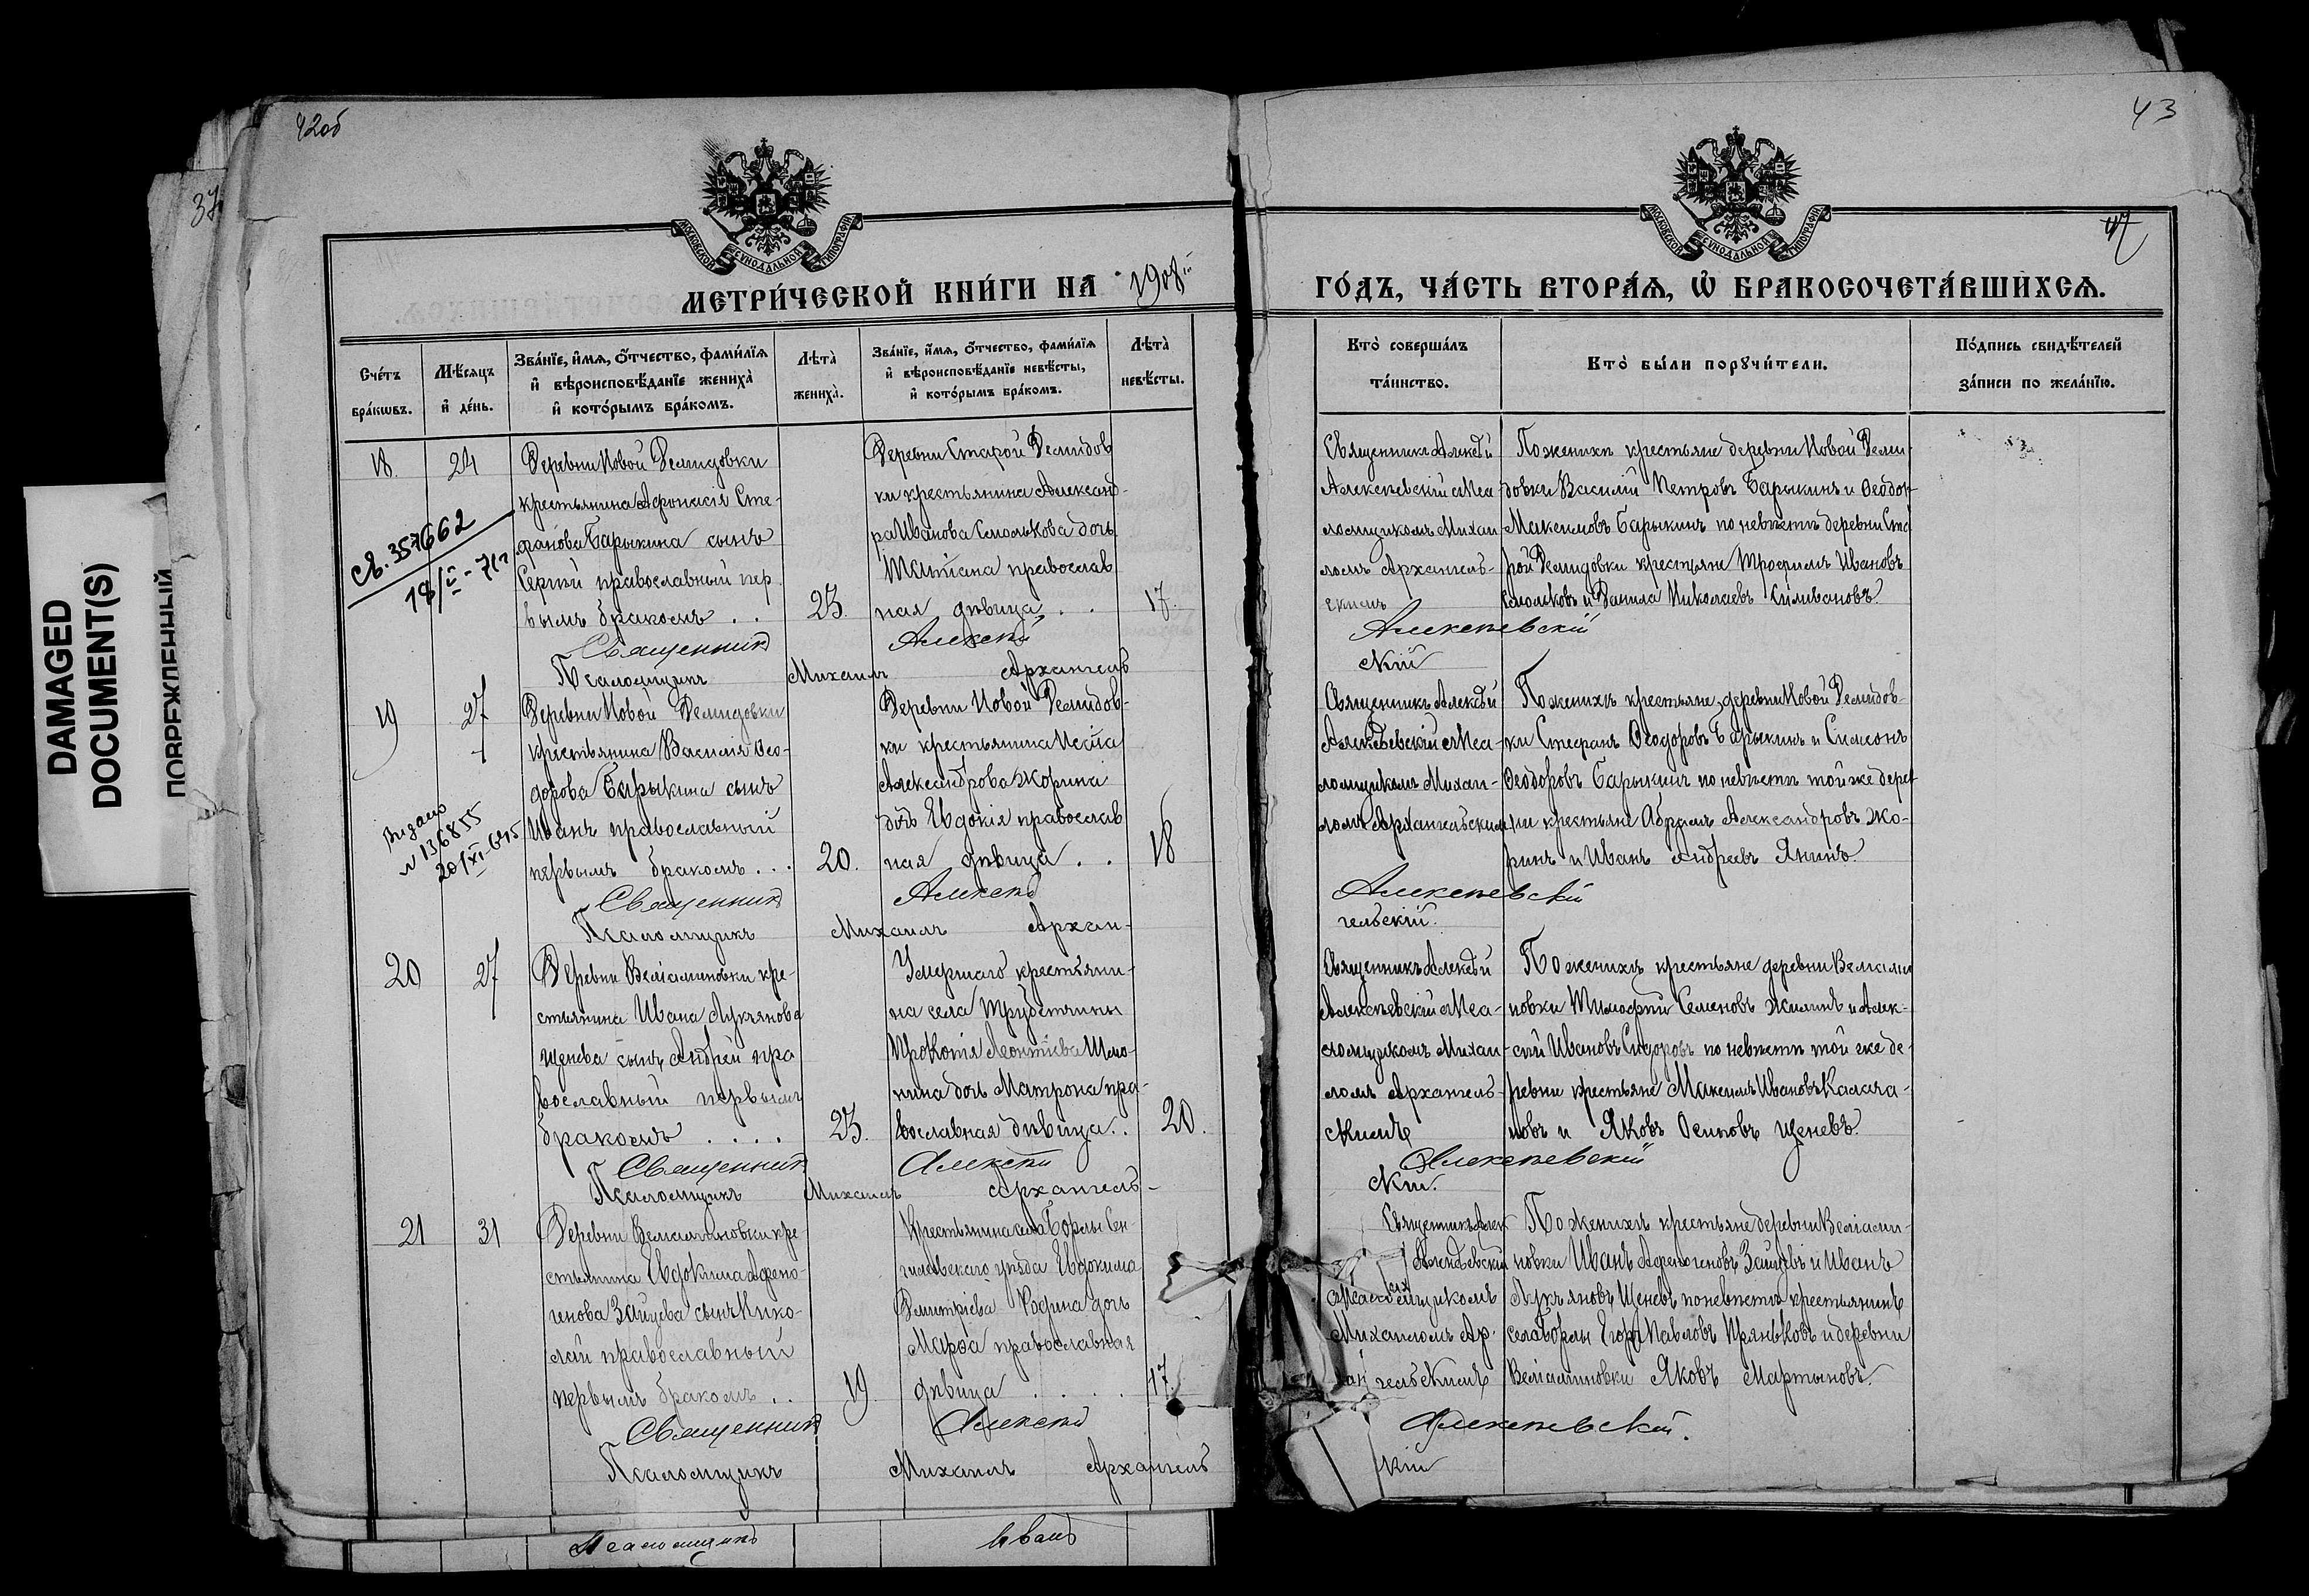 42об
43
37
47
DAMAGED
DOCUMENT(S)
ПОВРЕЖДЕННЫЙ
МОСКОВСКОЙ СѴНОДАЛЬНОЙ ТИПОГРАФІИ
МОСКОВСКОЙ СѴНОДАЛЬНОЙ ТИПОГРАФІИ
МЕТРИ́ЧЕСКОЙ КНИ́ГИ НА 1908й
ГО́ДЪ, ЧА́СТЬ ВТОРА́Я, Ѡ҆ БРАКОСОЧЕТА́ВШИХСЯ.
Сче́тъ
бра́кѡвъ.
Мѣ́сяцъ
и҆ де́нь.
Зва́нїе, и҆́мя, о҆́тчество, фами́лїя
и҆ вѣроисповѣ́данїе жениха̀
и҆ кото́рымъ бра́комъ.
Лѣта̀
жениха̀.
Зва́нїе, и҆́мя, о҆́тчество, фами́лїя
и҆ вѣроисповѣ́данїе невѣ́сты,
и҆ кото́рымъ бра́комъ.
Лѣта̀
невѣ́сты.
Кто̀ соверша́лъ
та́инство.
Кто̀ бы́ли порꙋчи́тели.
По́дпись свидѣ́телей
за́писи по жела́нїю.
18.
24
Св. 357662
18/II - 71г.
Деревни Новой Демидовки
крестьянина Афонасія Сте-
фанова Барыкина сынъ
Сергій православный пер
вымъ бракомъ . .
23.
Деревни Старой Демидов
ки крестьянина Алексан-
ра Иванова Смолькова дочь
Татіана православ
ная дѣвица . .
17.
Священникъ Алексѣй
Алексѣевскій с Пса-
ломщикомъ Михаи
ломъ Архангель-
скимъ
По женихѣ крестьяне деревни Новой Деми-
довки Василій Петровъ Барыкинъ и Ѳеодоръ
Максимовъ Барыкинъ по невѣстѣ деревни Ста
рой Демидовки крестьяне Трофимъ Ивановъ
Смольковъ и Данила Николаевъ Силивановъ.
Священникъ Алексѣй Алексѣевскій
Псаломщикъ Михаилъ Архангель скій
19
27
Видано
N 136855
20/XI-645
Деревни Новой Демидовки
крестьянина Василія Ѳео-
дорова Барыкина сынъ
Иванъ православный
первымъ бракомъ . . .
20.
Деревни Новой Демидов-
ки крестьянина Исаіа
Александрова Жорина
дочь Евдокія православ
ная дѣвица . .
18
Священникъ Алексѣй
Алексѣевскій с Пса-
ломщикомъ Михаи-
ломъ Архангельскимъ
По женихѣ крестьяне деревни Новой Демидов-
ки Стефанъ Ѳеодоровъ Барыкинъ и Симеонъ
Ѳеодоровъ Барыкинъ по невѣстѣ той же дерев
ни крестьяне Абрамъ Александровъ Жо-
ринъ и Иванъ Андреевъ Янинъ.
Священникъ Алексѣй Алексѣевскій
Псаломщикъ Михаилъ Архан- гельскій.
20
27
Деревни Веніаминовки кре-
стьянина Ивана Лукьянова
Щенева сынъ Андрей пра
вославный первымъ
бракомъ . . . .
23.
Умершаго крестьяни-
на села Трубетчины
Прокопія Леонтіева
дочь Матрона пра-
вославная дѣвица . .
20.
Священникъ Алексѣй
Алексѣевскій с Пса-
ломщикомъ Михаи-
ломъ Архангель-
скимъ
По женихѣ крестьяне деревни Веніами
новки Тимофей Семеновъ Жилинъ и Алек-
сѣй Ивановъ Сидоровъ по невѣстѣ той же де-
ревни крестьяне Максимъ Ивановъ Калача-
новъ и Яковъ Осиповъ Щеневъ.
Священникъ Алексѣй Алексѣевскій
Псаломщикъ Михаилъ Архангель- скій.
21
31
Деревни Веніаминовки кре-
стьянина Евдокима Афено-
генова Зайцева сынъ Нико-
лай православный
первымъ бракомъ . .
19.
Крестьянина села Борлы Сен-
гилеевскаго уѣзда Евдокима
Димитріева Родина дочь
Марѳа православная
дѣвица . . . .
17.
Священникъ Алек
Алексѣевскій
Псаломщикомъ
Михаиломъ Ар-
хан гельскимъ
По женихѣ крестьяне деревни Веніами-
новки Иванъ Афеногеновъ Зайцевъ и Иванъ
Лукъяновъ Щеневъ по невѣстѣ крестьянинъ
села Борлы Егоръ Павловъ Пряньковъ и деревни
Веніаминовки Яковъ Мартыновъ.
Священникъ Алексѣй Алексѣевскій.
Псаломщикъ Михаилъ Архангель кій
Псаломщикъ Иванъ